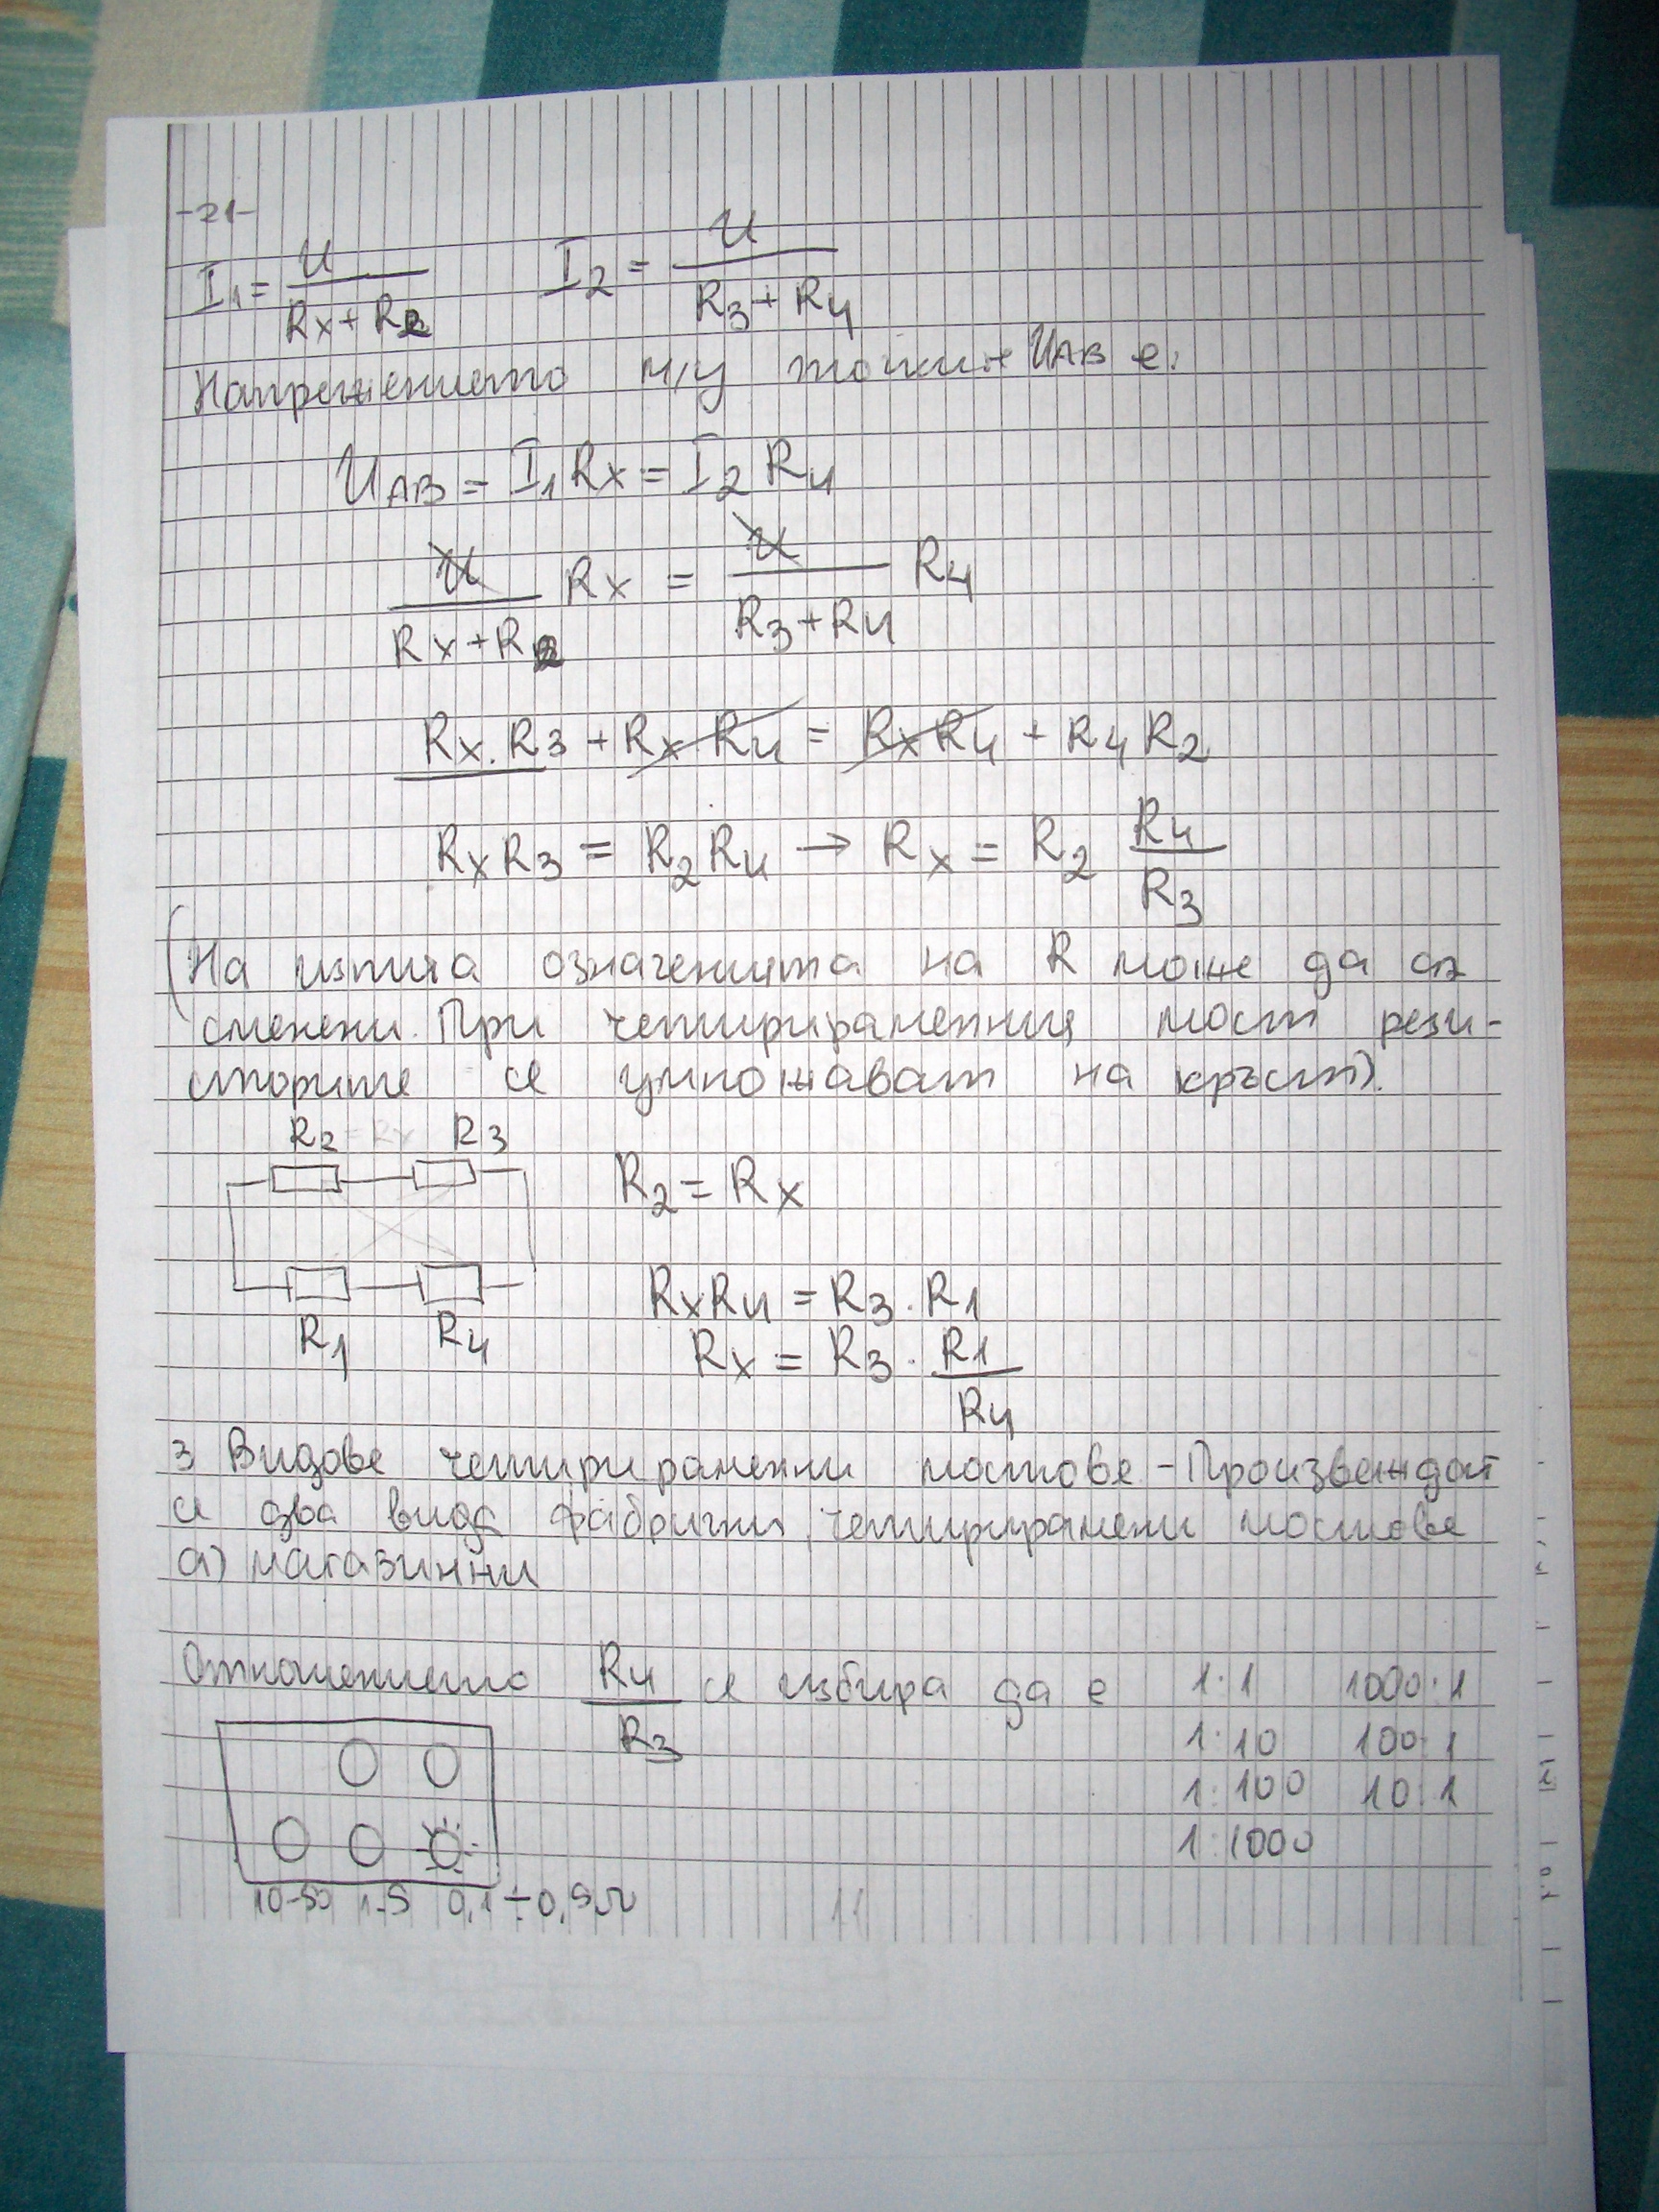 -21-
I1 = U / (Rx+R2)    I2 = U / (R3+R4)
Напрежението м/у точки UAB е:
UAB = I1 Rx = I2 R4
U / (Rx+R2) Rx = U / (R3+R4) R4
Rx.R3 + Rx R4 = Rx R4 + R4 R2
Rx R3 = R2 R4 → Rx = R2 R4/R3
(На изпита означенията на R може да са
сменени. При четирираменния мост рези-
сторите се умножават на кръст).
R2 = Rx R3
R2 = Rx
RxR4 = R3.R1
R1 R4
Rx = R3 . R1/R4
3 Видове четирираменни мостове - Произвеждат
се два вида фабрични, четирирамени мостове
а) магазинни
Отношението R4/R3 се избира да е 1:1 1000:1
1:10 100:1
1:100 10:1
1:1000
10-50 1-5 0,1÷0,5Ω